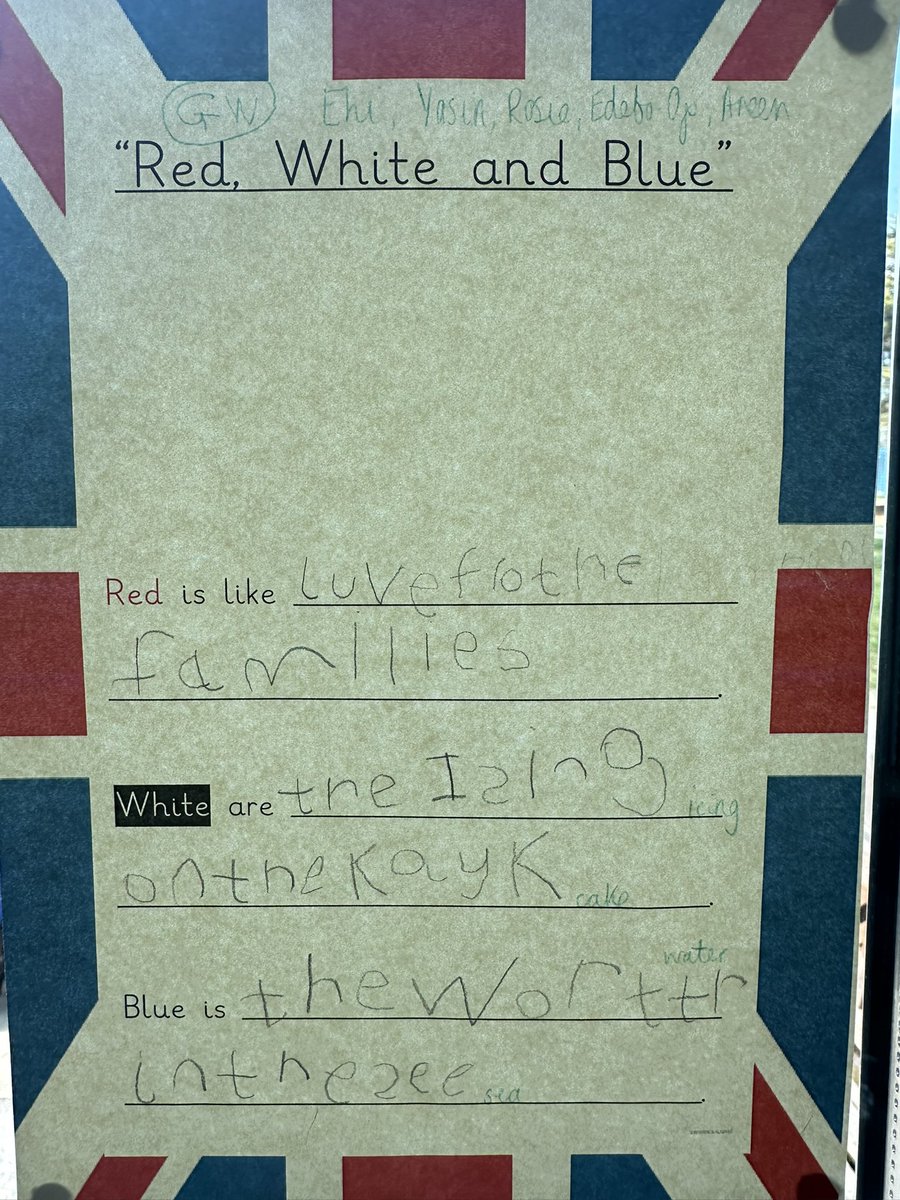 GW Ehi, Yasin, Rosie, Edebo Oj, Areen
“Red, White and Blue”
Red is like luvefrothe
famllies.
White are the Izing icing
onthekayk cake.
water
Blue is theworttr
inthezee sea.